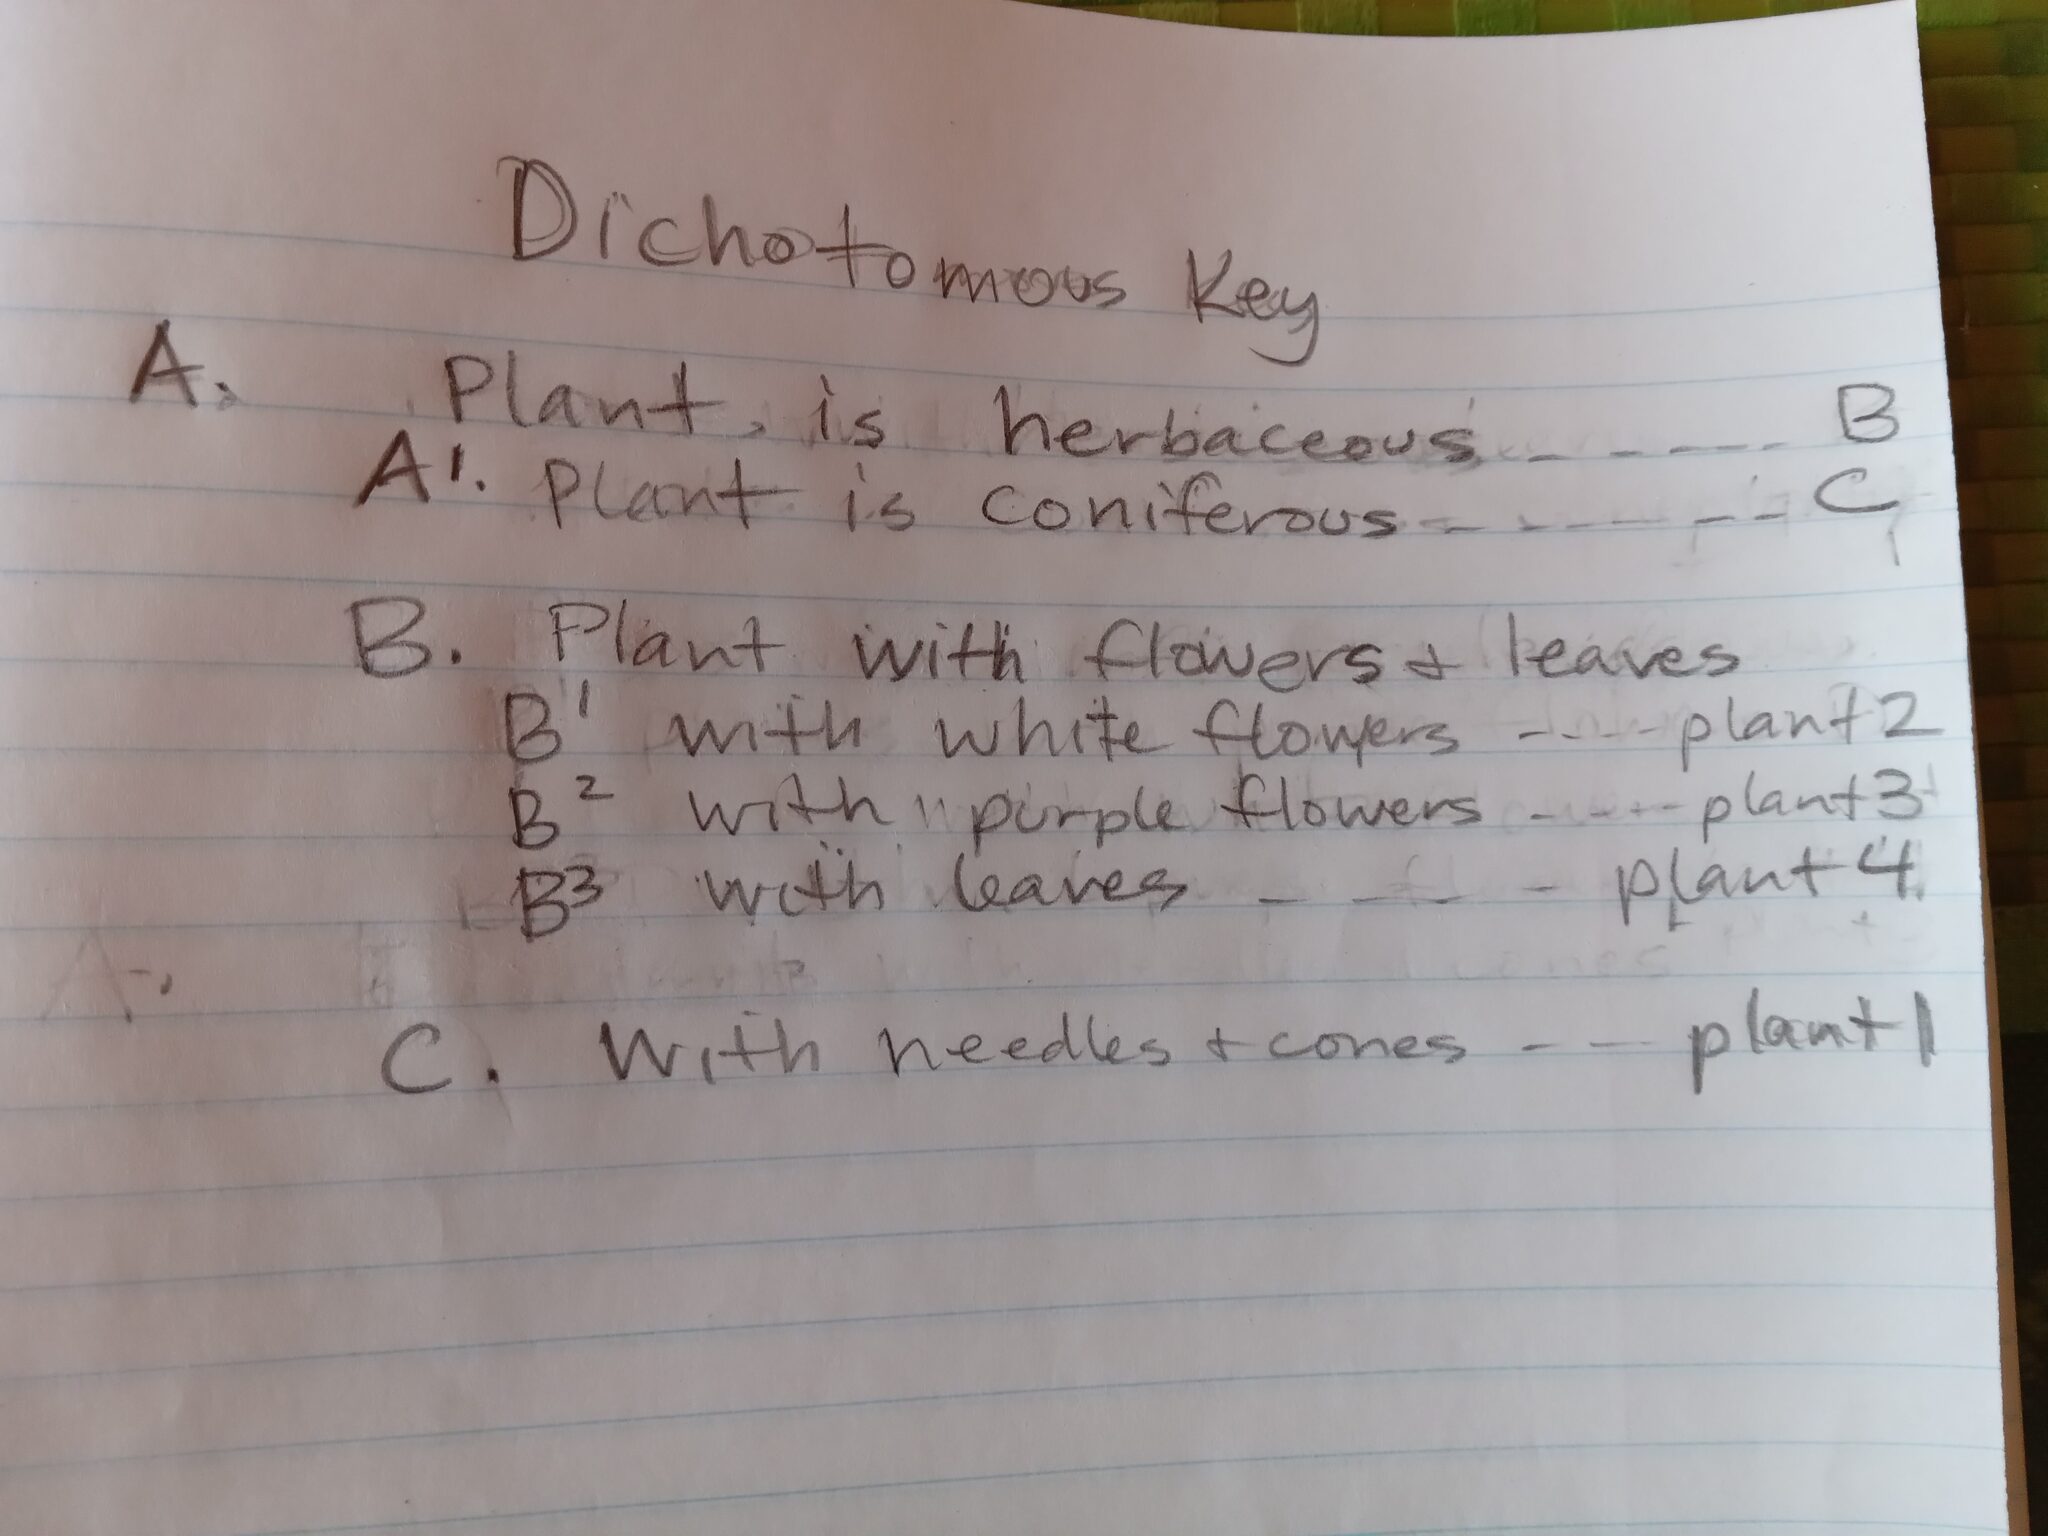 Dichotomous Key
A. Plant is herbaceous - - - - - B
A'. Plant is coniferous - - - - - - C
B. Plant with flowers + leaves
B' with white flowers - - - - plant 2
B² with purple flowers - - - - plant 3
B³ with leaves - - - - plant 4
C. With needles + cones - - plant 1